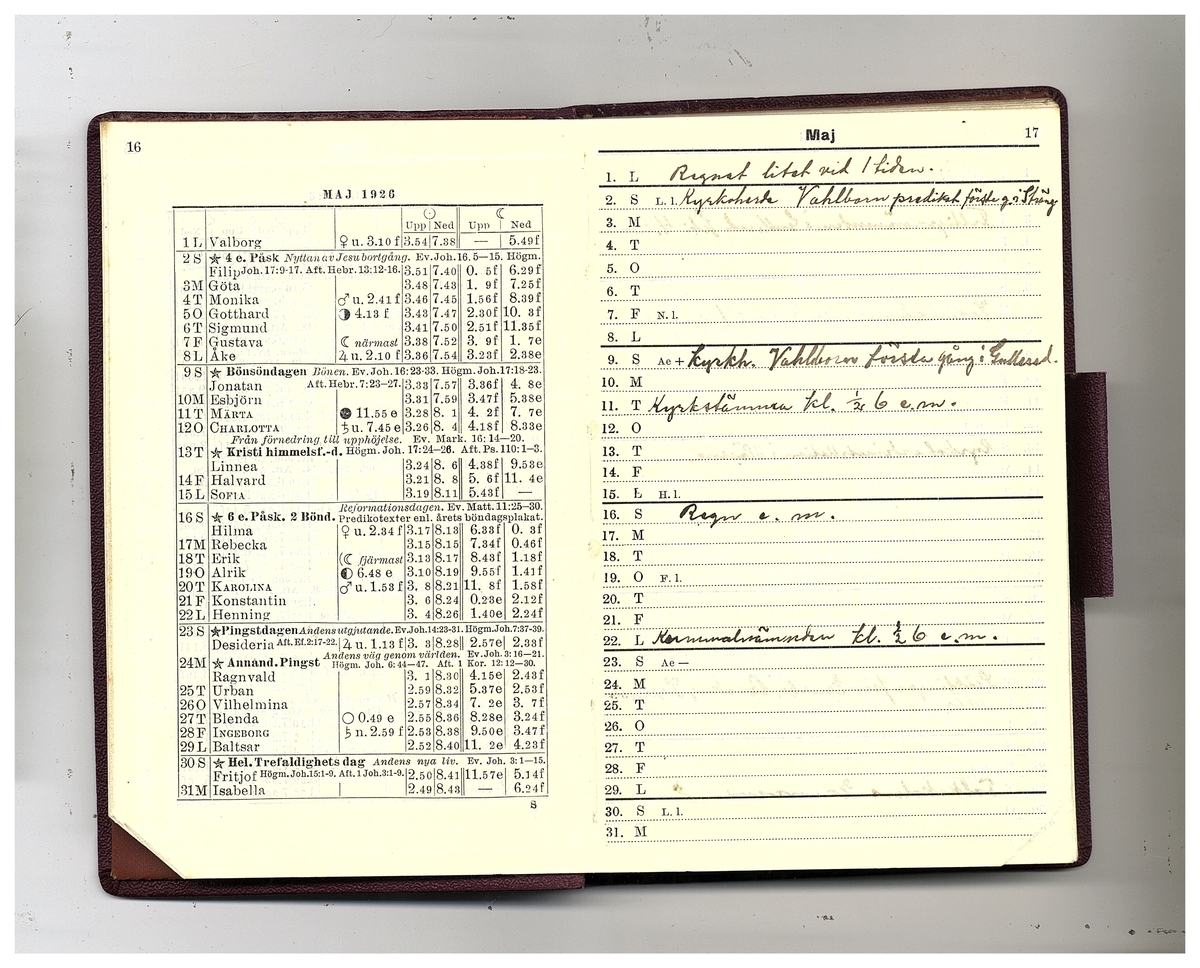 16
MAJ 1926
☉ ☾
Upp Ned Upp Ned
1 L Valborg ♀ u. 3.10 f 3.54 7.38 — 5.49f
2 S ★ 4 e. Påsk Nyttan av Jesu bortgång. Ev. Joh. 16. 5—15. Högm.
Filip Joh. 17:9-17. Aft. Hebr. 13:12-16. 3.51 7.40 0. 5f 6.29f
3M Göta 3.48 7.43 1. 9f 7.25f
4T Monika ♂ u. 2.41 f 3.46 7.45 1.56f 8.39f
5O Gotthard ◑ 4.13 f 3.43 7.47 2.30f 10. 3f
6T Sigmund 3.41 7.50 2.51f 11.35f
7F Gustava ☾ närmast 3.38 7.52 3. 9f 1. 7e
8L Åke ♃ u. 2.10 f 3.36 7.54 3.23f 2.38e
9 S ★ Bönsöndagen Bönen. Ev. Joh. 16: 23-33. Högm. Joh. 17:18-23.
Jonatan Aft. Hebr. 7: 23—27. 3.33 7.57 3.36f 4. 8e
10M Esbjörn 3.31 7.59 3.47f 5.38e
11T MÄRTA ● 11.55 e 3.28 8. 1 4. 2f 7. 7e
12O CHARLOTTA ♄ u. 7.45 e 3.26 8. 4 4.18f 8.33e
Från förnedring till upphöjelse. Ev. Mark. 16: 14—20.
13T ★ Kristi himmelsf.-d. Högm. Joh. 17:24-26. Aft. Ps. 110: 1—3.
Linnea 3.24 8. 6 4.38f 9.53e
14F Halvard 3.21 8. 8 5. 6f 11. 4e
15 L SOFIA 3.19 8.11 5.43f —
Reformationsdagen. Ev. Matt. 11: 25—30.
16 S ★ 6 e. Påsk. 2 Bönd. Predikotexter enl. årets böndagsplakat.
Hilma ♀ u. 2.34 f 3.17 8.13 6.33f 0. 3f
17M Rebecka 3.15 8.15 7.34f 0.46f
18T Erik ☾ fjärmast 3.13 8.17 8.43f 1.18f
19O Alrik ◐ 6.48 e 3.10 8.19 9.55f 1.41f
20T KAROLINA ♂ u. 1.53 f 3. 8 8.21 11. 8f 1.58f
21F Konstantin 3. 6 8.24 0.23e 2.12f
22L Henning 3. 4 8.26 1.40e 2.24f
23 S ★ Pingstdagen Andens utgjutande. Ev. Joh. 14:23-31. Högm. Joh. 7:37-39.
Desideria Aft. Ef. 2:17-22. ♃ u. 1.13 f 3. 3 8.28 2.57e 2.33f
Andens väg genom världen. Ev. Joh. 3: 16—21.
24M ★ Annand. Pingst Högm. Joh. 6: 44—47. Aft. 1 Kor. 12: 12—30.
Ragnvald 3. 1 8.30 4.15e 2.43f
25T Urban 2.59 8.32 5.37e 2.53f
26O Vilhelmina 2.57 8.34 7. 2e 3. 7f
27T Blenda ○ 0.49 e 2.55 8.36 8.28e 3.24f
28F INGEBORG ♄ n. 2.59 f 2.53 8.38 9.50e 3.47f
29L Baltsar 2.52 8.40 11. 2e 4.23f
30 S ★ Hel. Trefaldighets dag Andens nya liv. Ev. Joh. 3: 1—15.
Fritjof Högm. Joh. 15:1-9. Aft. 1 Joh. 3:1-9. 2.50 8.41 11.57e 5.14f
31M Isabella 2.49 8.43 — 6.24f
S
Maj 17
1. L Regnat litet vid 1 tiden.
2. S L. l. Kyrkoherde Vahlborn predikat första g. i Sträng
3. M
4. T
5. O
6. T
7. F N. l.
8. L
9. S Ae + Kyrkh. Vahlborn första gång i
10. M
11. T Kyrkstämma kl. ½ 6 e.m.
12. O
13. T
14. F
15. L H. l.
16. S Regn e. m.
17. M
18. T
19. O F. l.
20. T
21. F
22. L Kommunalnämnden kl. ½ 6 e.m.
23. S Ae —
24. M
25. T
26. O
27. T
28. F
29. L
30. S L. l.
31. M